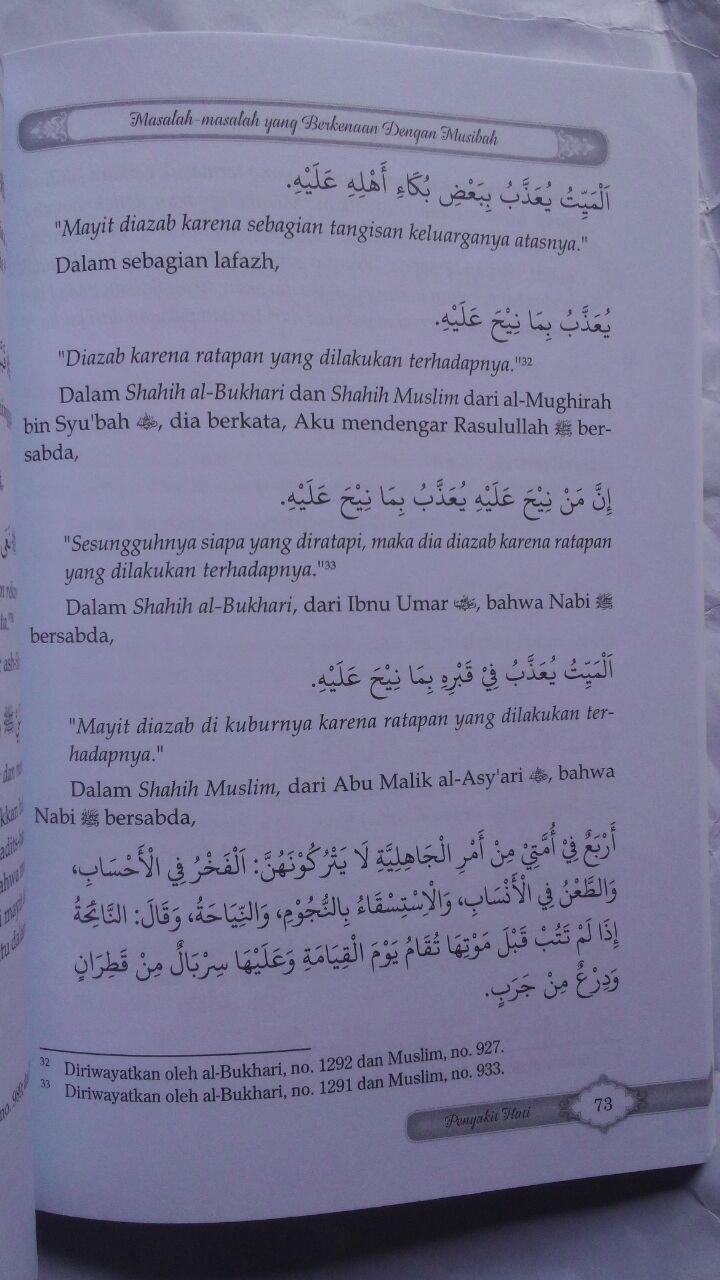 Masalah-masalah yang Berkenaan Dengan Musibah
اَلْمَيِّتُ يُعَذَّبُ بِبَعْضِ بُكَاءِ أَهْلِهِ عَلَيْهِ.
"Mayit diazab karena sebagian tangisan keluarganya atasnya."
Dalam sebagian lafazh,
يُعَذَّبُ بِمَا نِيْحَ عَلَيْهِ.
"Diazab karena ratapan yang dilakukan terhadapnya."32
Dalam Shahih al-Bukhari dan Shahih Muslim dari al-Mughirah
bin Syu'bah ؓ, dia berkata, Aku mendengar Rasulullah ﷺ ber-
sabda,
إِنَّ مَنْ نِيْحَ عَلَيْهِ يُعَذَّبُ بِمَا نِيْحَ عَلَيْهِ.
"Sesungguhnya siapa yang diratapi, maka dia diazab karena ratapan
yang dilakukan terhadapnya."33
Dalam Shahih al-Bukhari, dari Ibnu Umar ؓ, bahwa Nabi ﷺ
bersabda,
اَلْمَيِّتُ يُعَذَّبُ فِيْ قَبْرِهِ بِمَا نِيْحَ عَلَيْهِ.
"Mayit diazab di kuburnya karena ratapan yang dilakukan ter-
hadapnya."
Dalam Shahih Muslim, dari Abu Malik al-Asy'ari ؓ, bahwa
Nabi ﷺ bersabda,
أَرْبَعٌ فِيْ أُمَّتِيْ مِنْ أَمْرِ الْجَاهِلِيَّةِ لَا يَتْرُكُوْنَهُنَّ: اَلْفَخْرُ فِي الْأَحْسَابِ،
وَالطَّعْنُ فِي الْأَنْسَابِ، وَالْاِسْتِسْقَاءُ بِالنُّجُوْمِ، وَالنِّيَاحَةُ، وَقَالَ: النَّائِحَةُ
إِذَا لَمْ تَتُبْ قَبْلَ مَوْتِهَا تُقَامُ يَوْمَ الْقِيَامَةِ وَعَلَيْهَا سِرْبَالٌ مِنْ قَطِرَانٍ
وَدِرْعٌ مِنْ جَرَبٍ.
32 Diriwayatkan oleh al-Bukhari, no. 1292 dan Muslim, no. 927.
33 Diriwayatkan oleh al-Bukhari, no. 1291 dan Muslim, no. 933.
Penyakit Hati 73